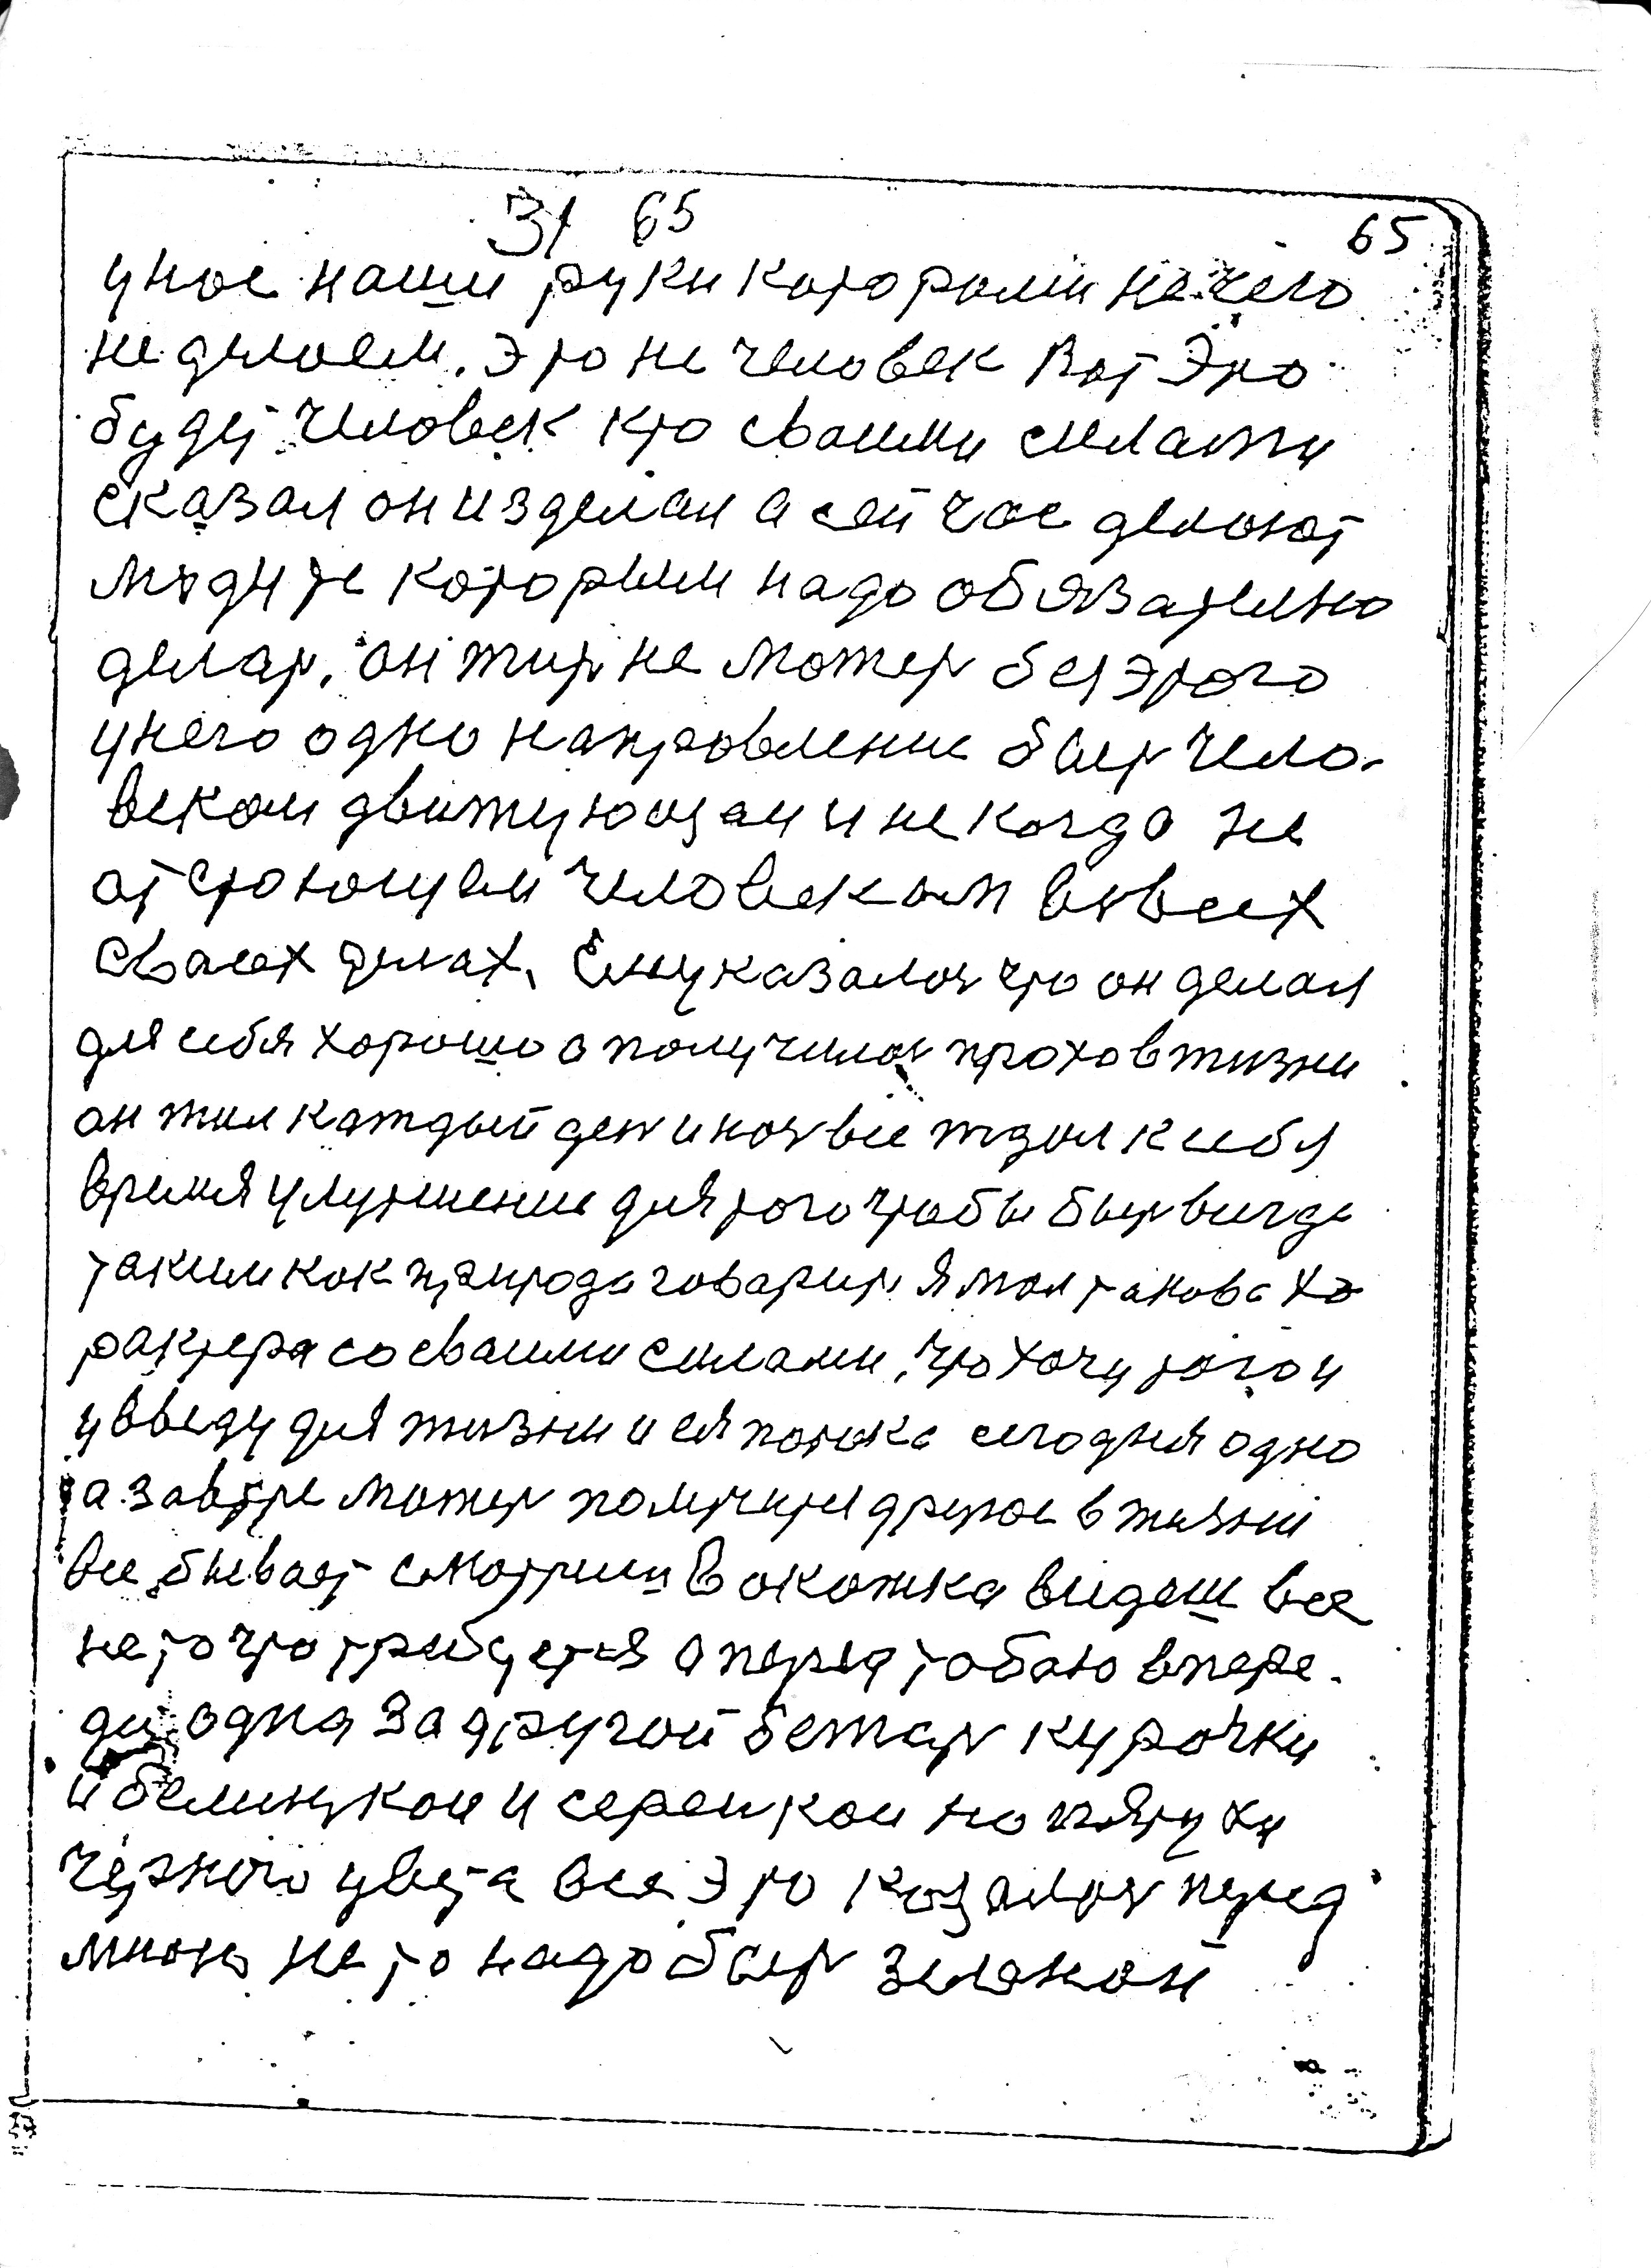 31 65
65
унас наши руки которыми нечего
не делаем. Это не человек Вот Это
будет человек кто сваими силами
сказал он изделал а сейчас делают
люди те которым надо обязателно
делат, он жит не может без этого
унего одно направление быт чело-
веком движующам и некогда не
отстающем человеком вовсех
сваех делах. Ему казалос что он делал
для себя хорошо а получилос плохо в жизни
он жил каждый ден и ноч все ждал к себя
время улутшение для того чтобы быт всегда
таким как природа говарит я мол такова ха
рактера со сваими силами, что хочу того и
уввeду для жизни и ея потока сегодня одно
а завтре может получится другое в жизни
все бывает смотриш в окожка видеш все
не то что требуется а перед тобаю впере-
ди одна за другой бежат курочки
и белинкои и серенкои но петухи
чёрного цвета все Это казалос перед
мною не то надо быт зеленои